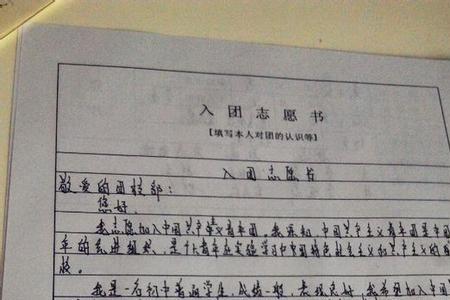 入团志愿书
【填写本人对团的认识等】
入团志愿书
敬爱的团校部：
您好
我志愿加入中国共产主义青年团，我深知，中国共产主义青年团是中国
年的先进组织，是广大青年在实践学习中中国特色社主义和共产主义的
校。
我是一名初中普通学生，成绩一般，表现良好，我希望加入中国